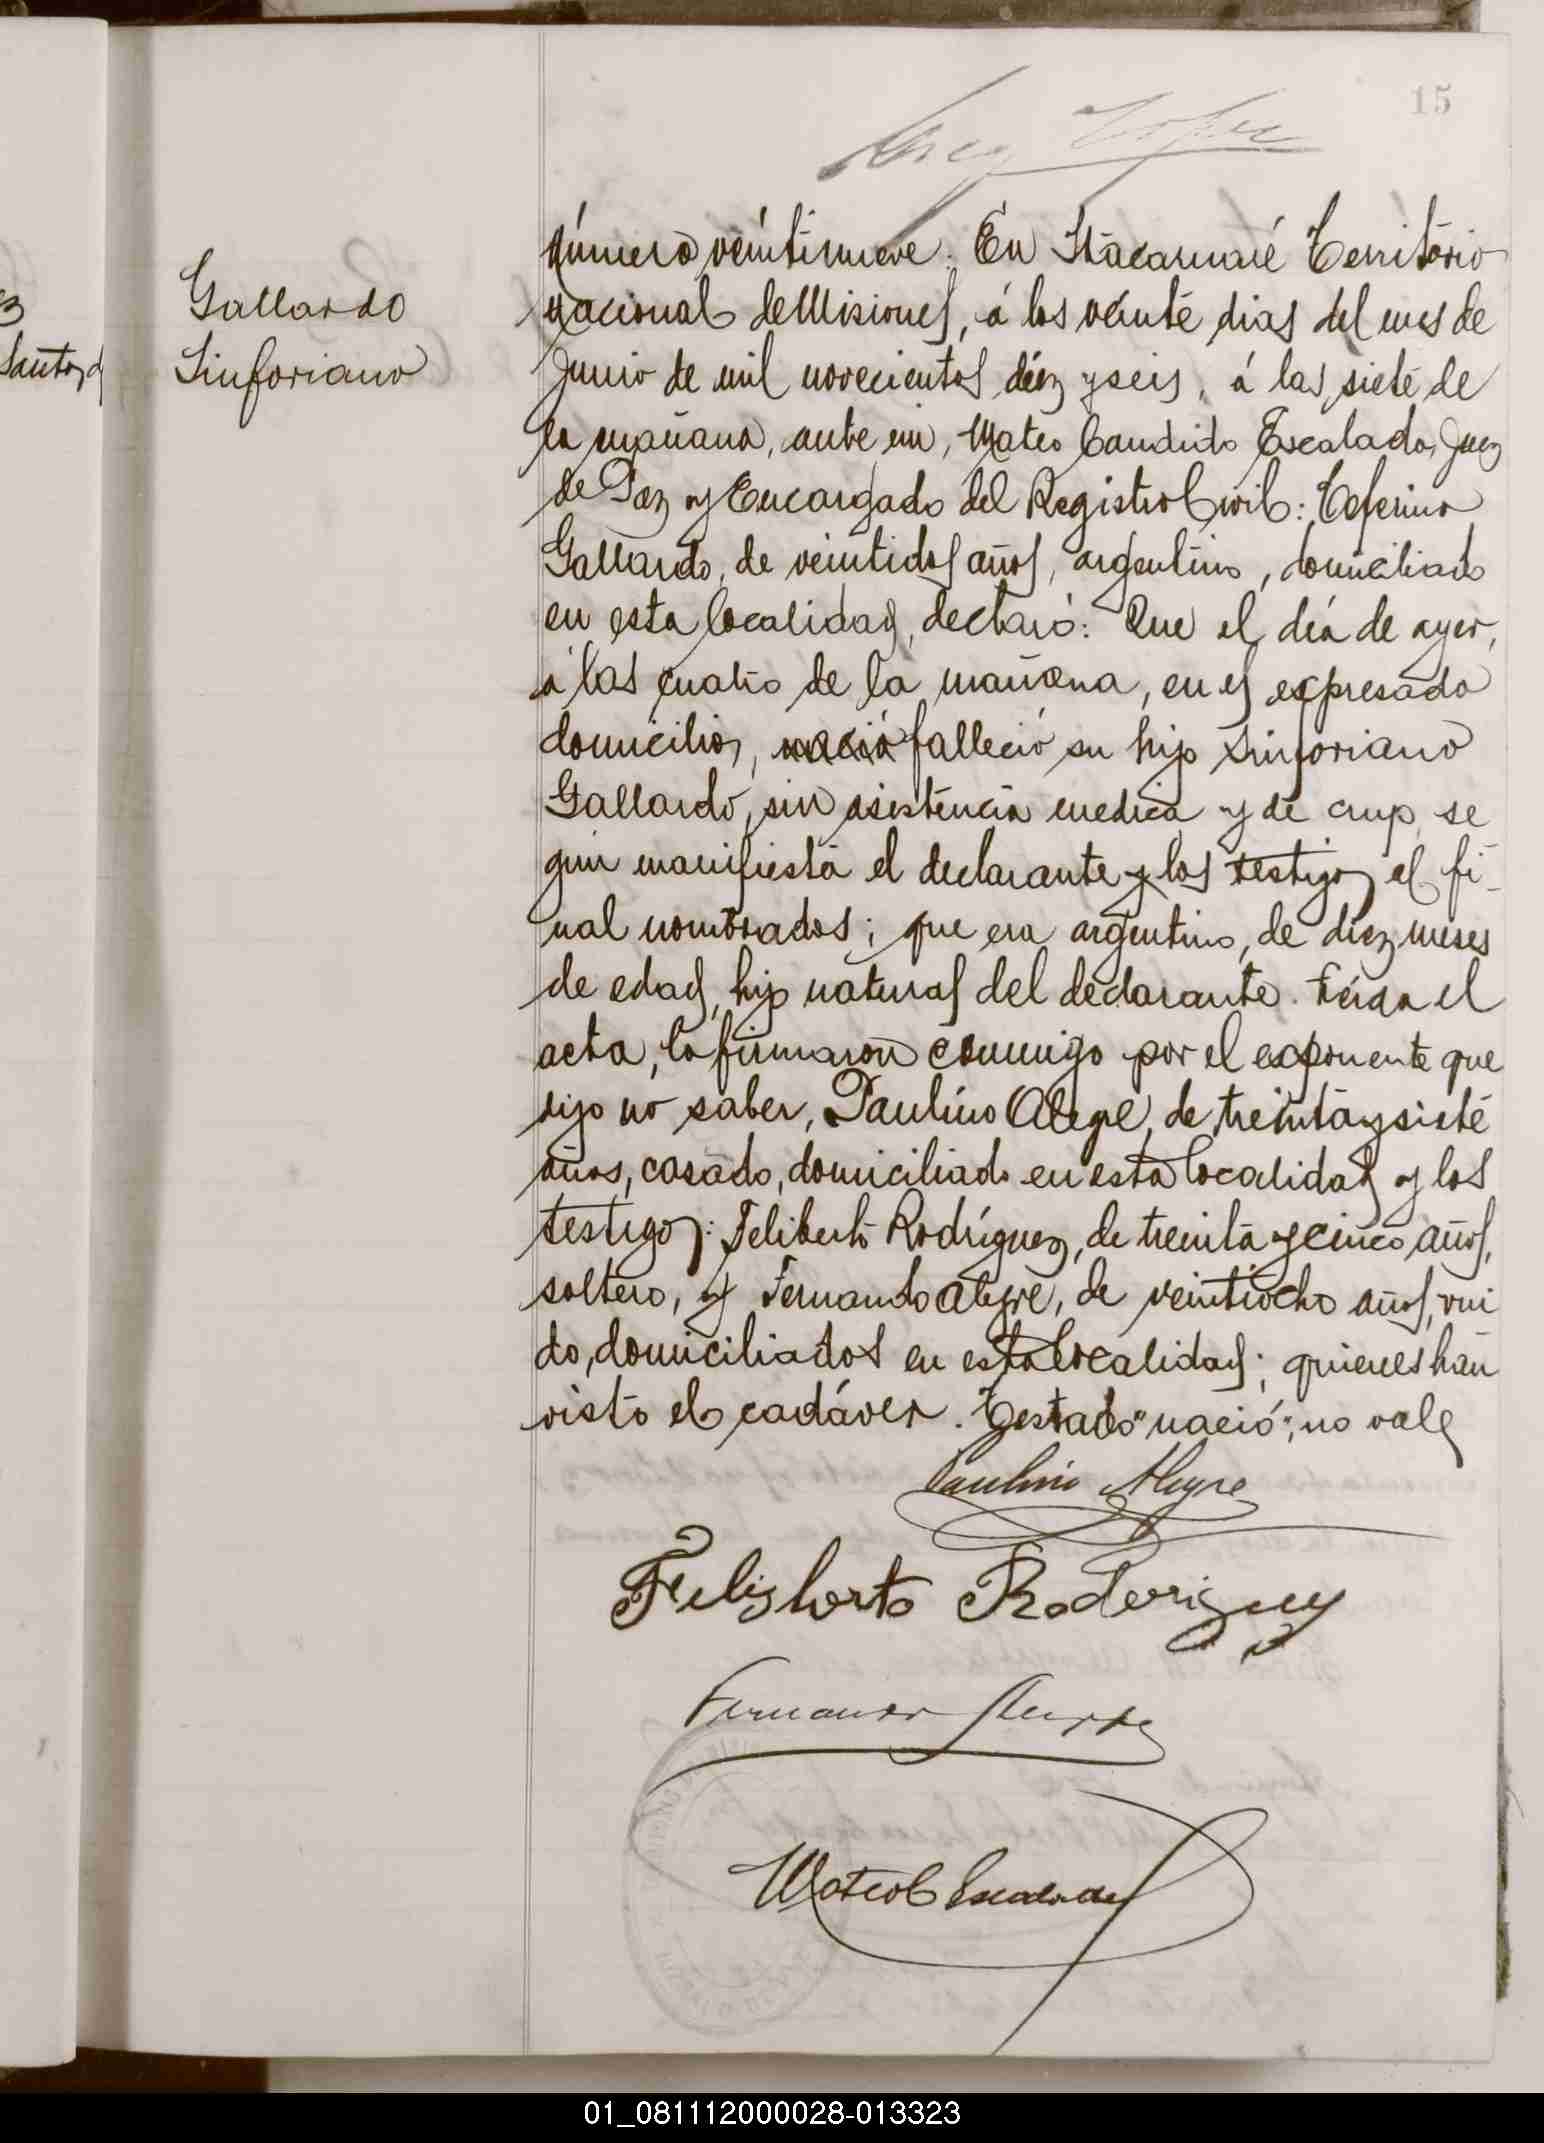 15
Gallardo
Sinforiano
Santos
número veintinueve. En Itacaruaré Territorio
nacional de Misiones, á los veinte dias del mes de
Junio de mil novecientos diez y seis, á las siete de
la mañana, ante mi, Mateo Candido Escalada, Juez
de Paz y Encargado del Registro Civil: Ceferino
Gallardo, de veintidos años, argentino, domiciliado
en esta localidad, declaró: Que el día de ayer,
á las cuatro de la mañana, en el expresado
domicilio, nació falleció su hijo Sinforiano
Gallardo, sin asistencia medica y de crup, se
gun manifiesta el declarante y los testigos al fi-
nal nombrados; que era argentino, de diez meses
de edad, hijo natural del declarante. Leida el
acta, la firmaron conmigo por el exponente que
dijo no saber, Paulino Alegre, de treinta y siete
años, casado, domiciliado en esta localidad y los
testigos: Feliberto Rodríguez, de treinta y cinco años,
soltero, y Fernando Alegre, de veintiocho años, viu
do, domiciliados en esta localidad; quienes han
visto el cadáver. Testado "nació"; no vale
Paulino Alegre
Felisberto Roderiguez
Fernando Alegre
Mateo C Escalada
01_081112000028-013323